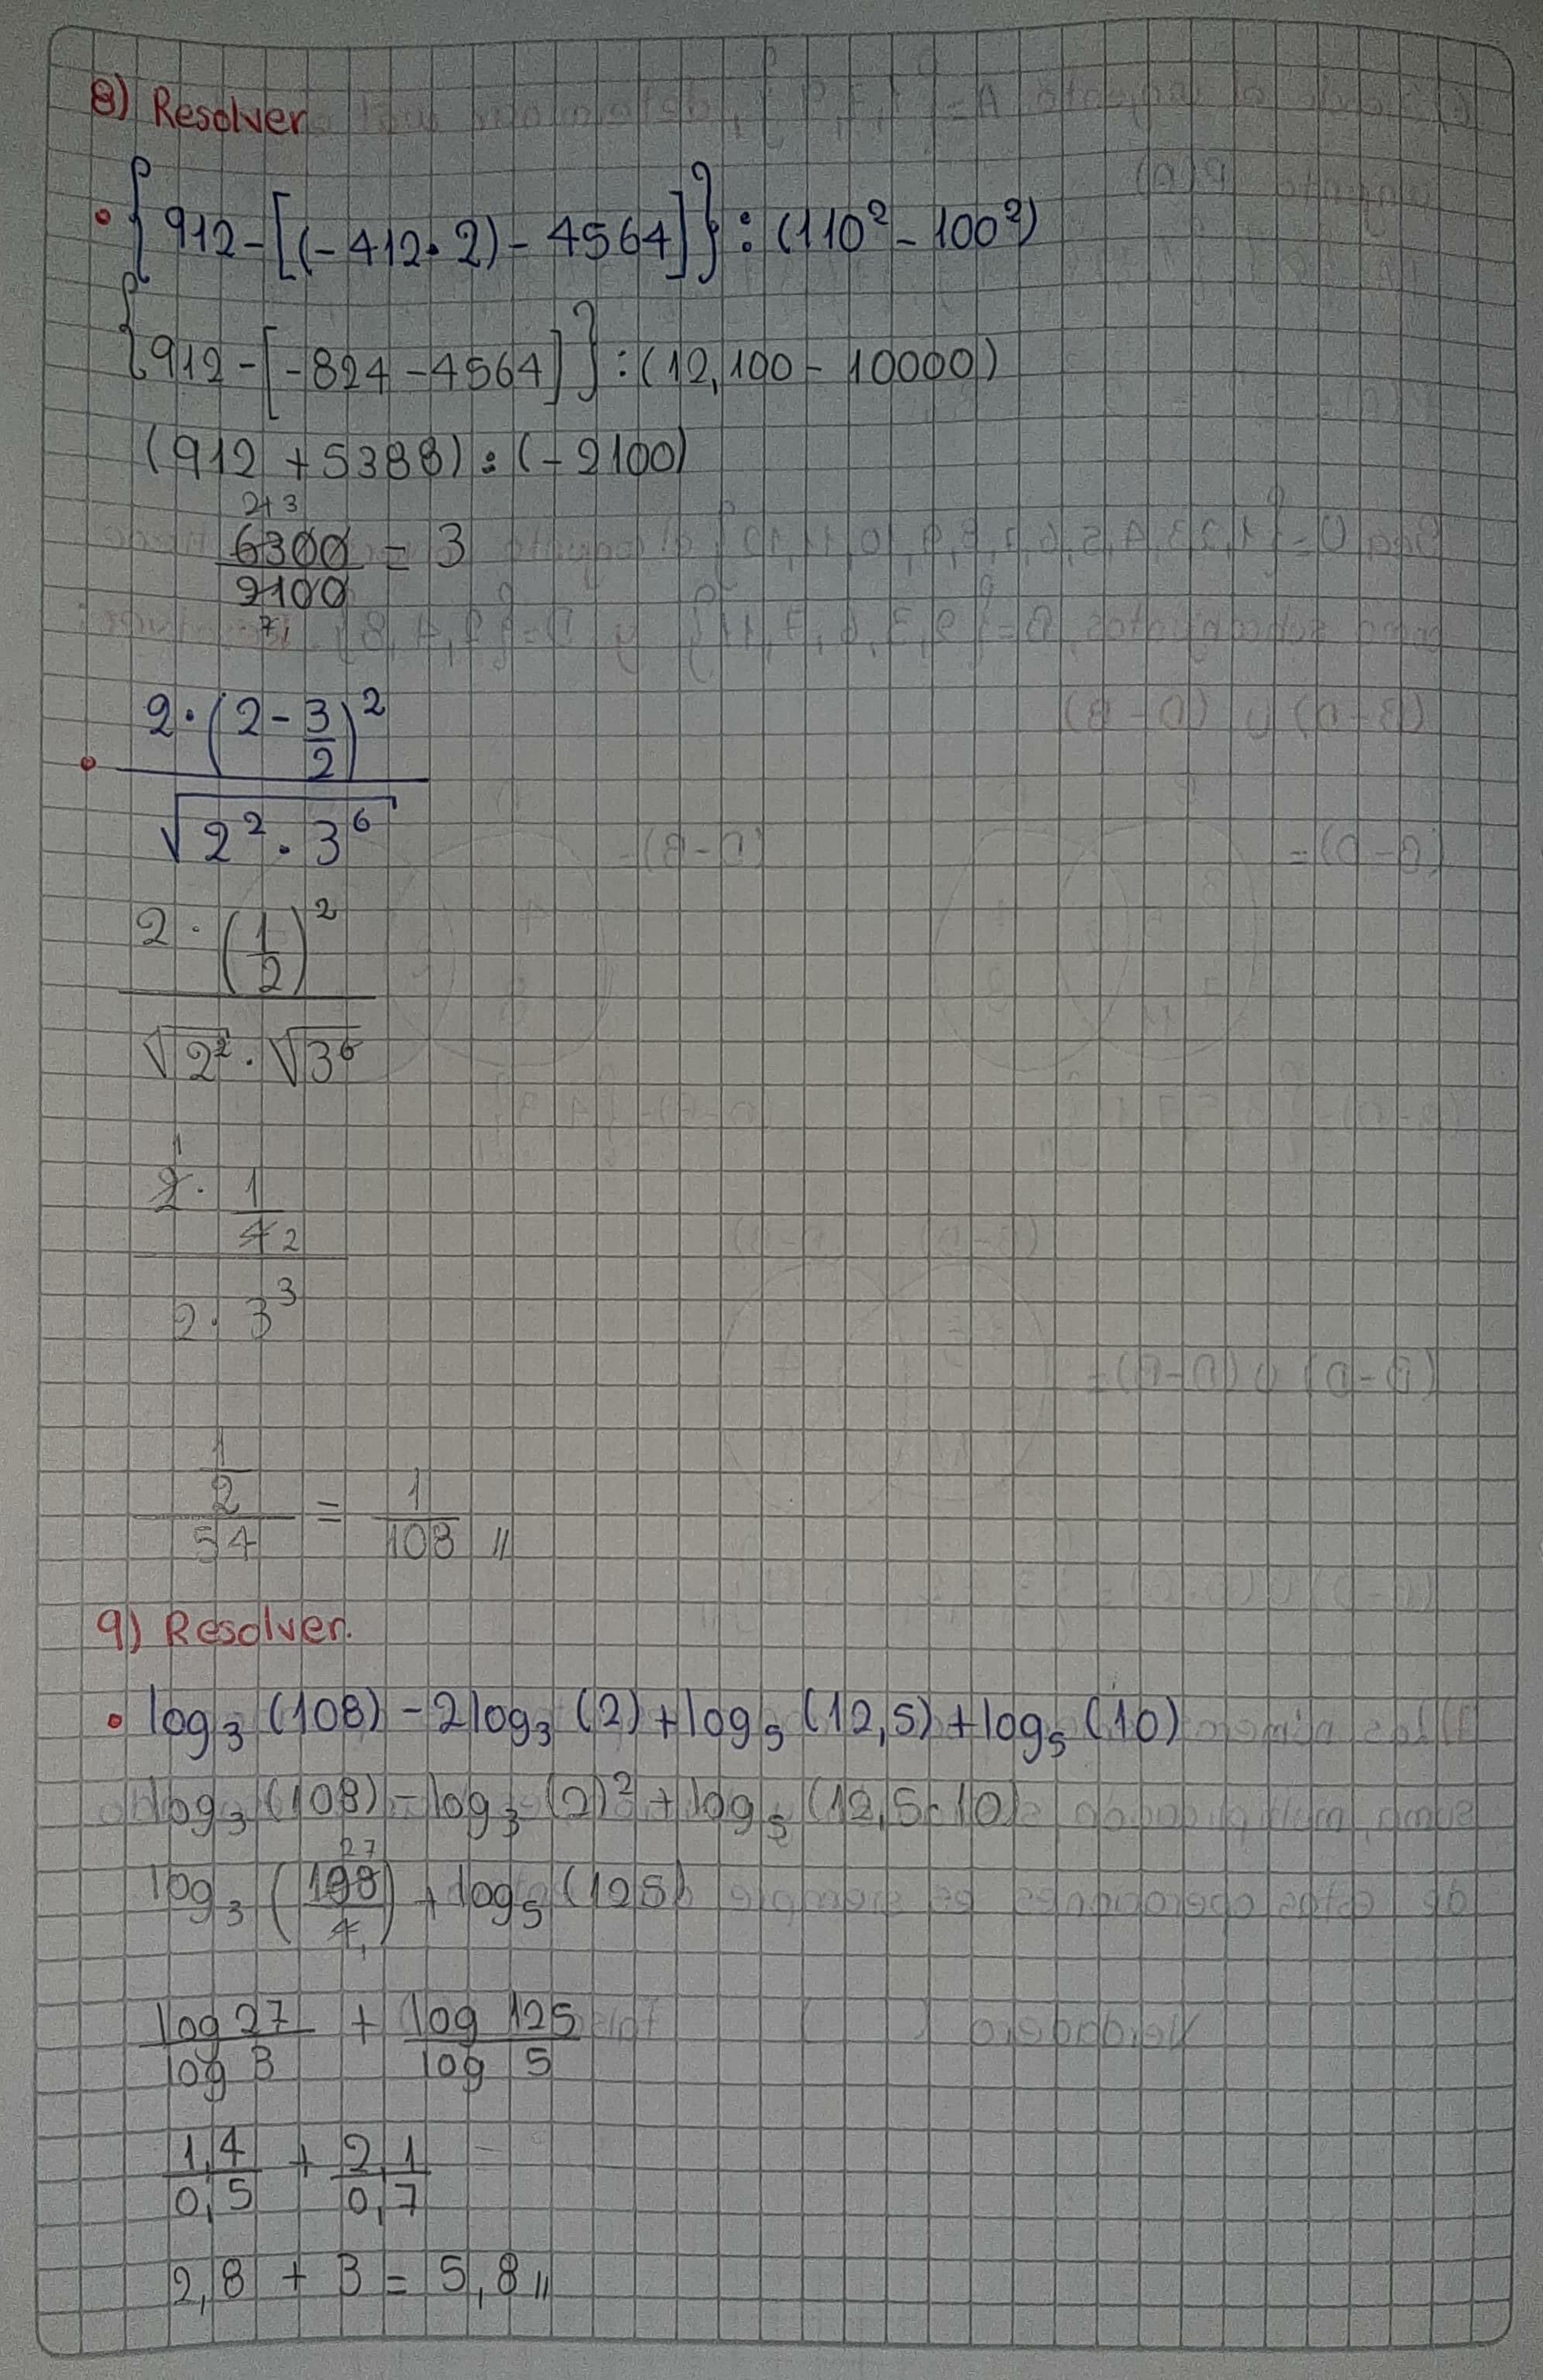 8) Resolver
• {912-[(-412·2)-4564]}:(110²-100²)
{912-[-824-4564]}:(12,100-10000)
(912+5388):(-2100)
21 3
6300/2100 = 3
7,
• 2·(2-3/2)²
√2²·3⁶
2·(1/2)²
√2²·√3⁶
1
2·1/4 2
2·3³
1/2
54 = 1/108 //
9) Resolver.
• log₃(108)-2log₃(2)+log₅(12,5)+log₅(10)
log₃(108)-log₃(2)²+log₅(12,5·10)
27
log₃(108/4)+log₅(125)
1
log 27/log 3 + log 125/log 5
1,4/0,5 + 2,1/0,7
2,8 + 3 = 5,8 //